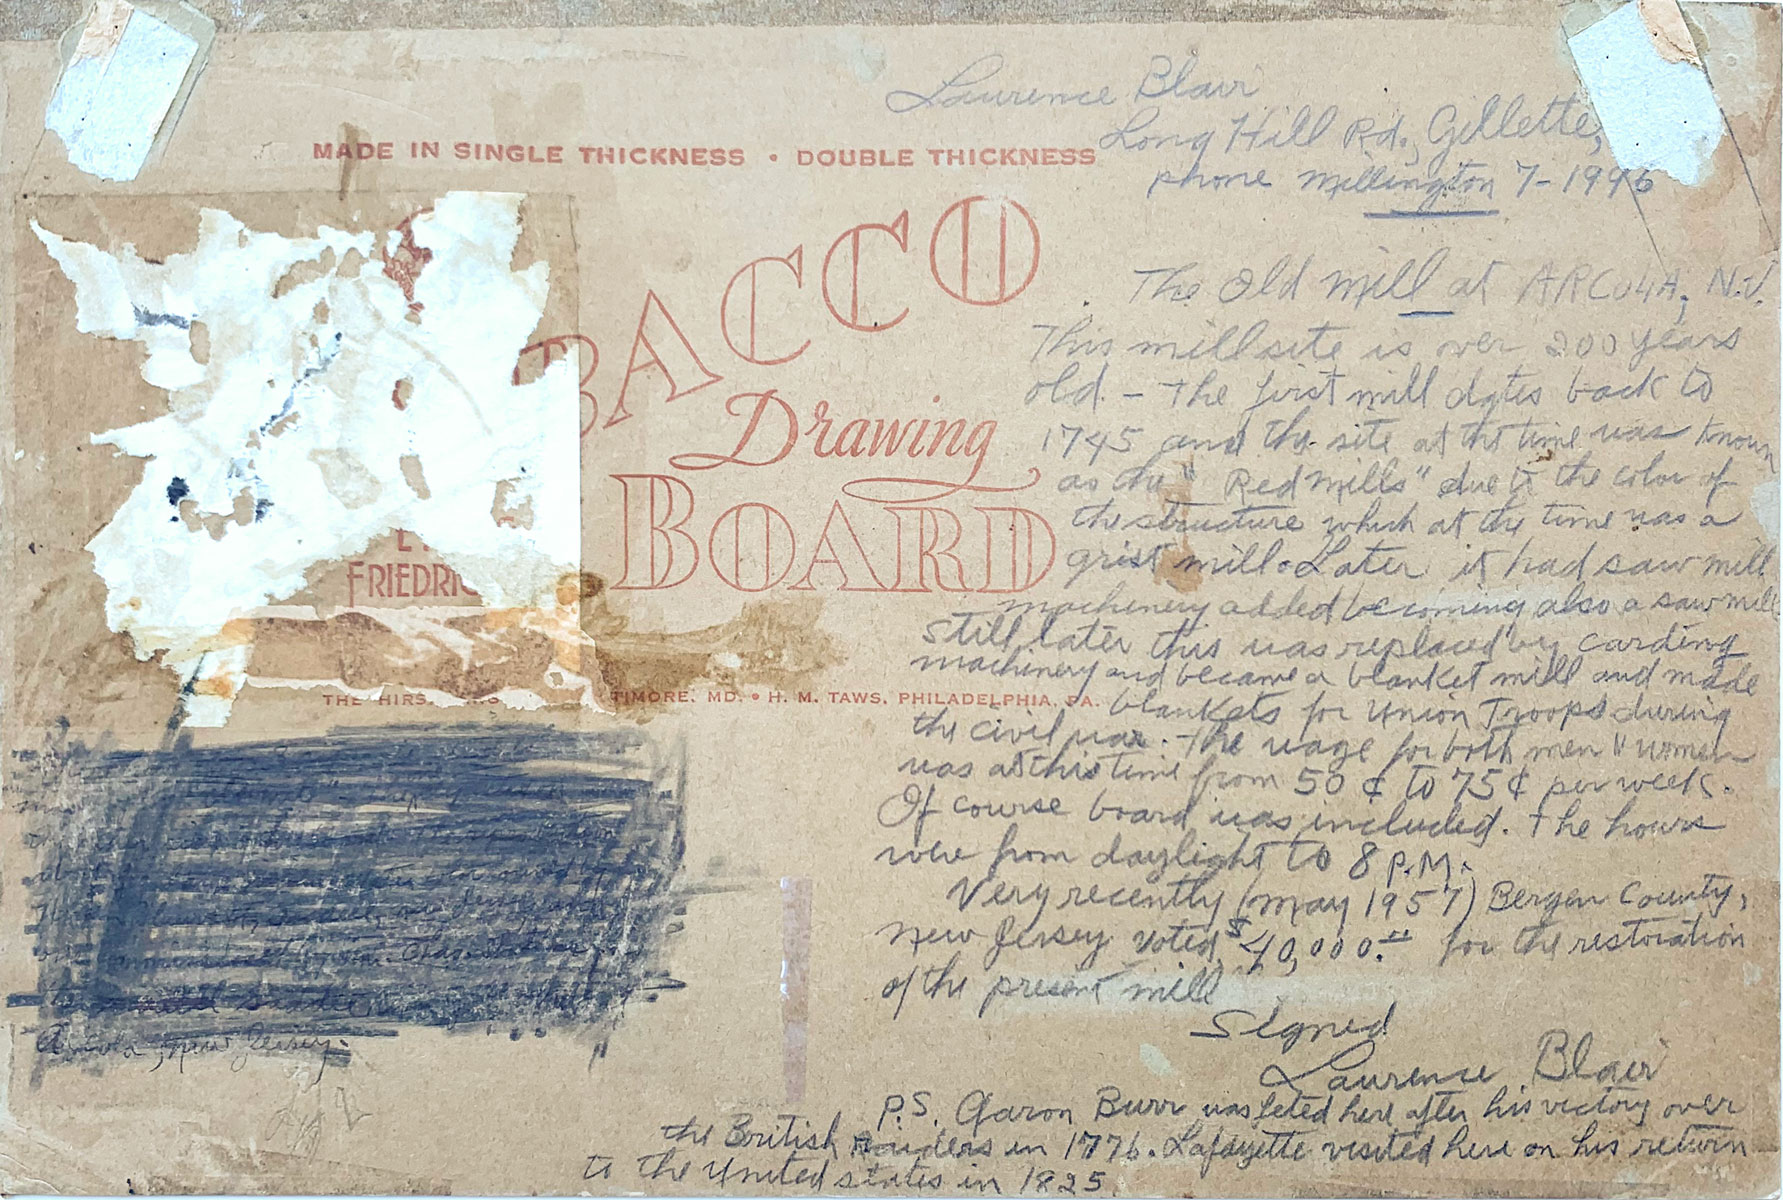 Laurence Blair
Long Hill Rd., Gillette,
phone Millington 7-1996
MADE IN SINGLE THICKNESS • DOUBLE THICKNESS
BACCO
Drawing
BOARD
FRIEDRIC
THE HIRS
TIMORE, MD. • H. M. TAWS, PHILADELPHIA, PA.
The Old Mill at ARCOLA, N.J.
This millsite is over 200 years
old. - The first mill dates back to
1745 and the site at the time was known
as the "Red Mills" due to the color of
the structure which at the time was a
grist mill. Later it had saw mill
machinery added becoming also a saw mill
Still later this was replaced by carding
machinery and became a blanket mill and made
blankets for Union Troops during
the civil war. The wage for both men " women
was at this time from 50 ¢ to 75 ¢ per week.
Of course board was included. The hours
were from daylight to 8 P.M.
Very recently (May 1957) Bergen County,
New Jersey voted $40,000.00 for the restoration
of the present mill
Signed
Laurence Blair
P.S. Aaron Burr was feted here after his victory over
the British Raiders in 1776. Lafayette visited here on his return
to the United States in 1825.
Arcola, New Jersey.